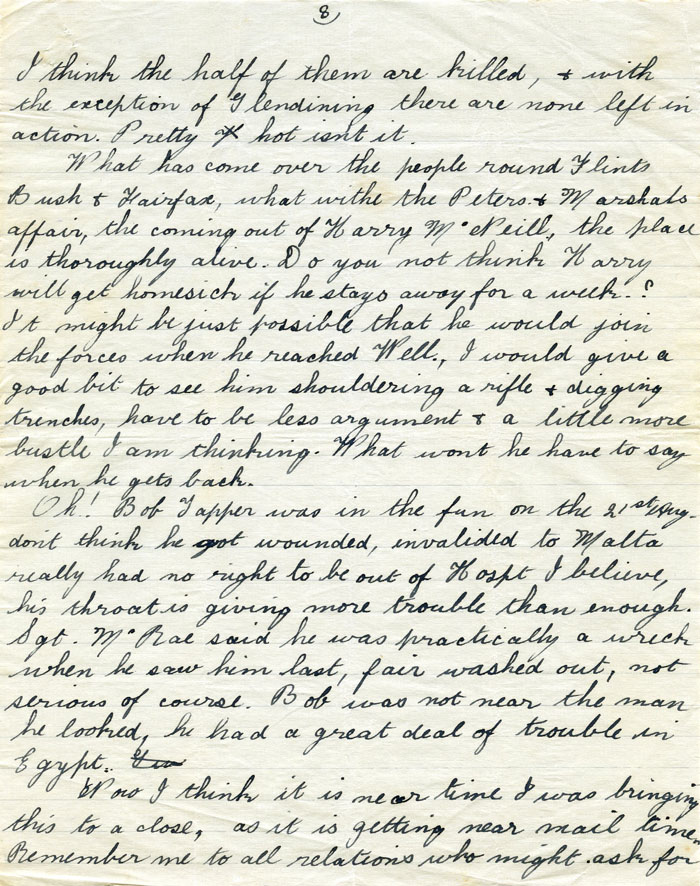 8
I think the half of them are killed, & with
the exception of Glendining there are none left in
action. Pretty hot isnt it.
What has come over the people round Flints
Bush & Hairfax, what withe the Peters & Marshals
affair, the coming out of Harry McNeill, the place
is thoroughly alive. Do you not think Harry
will get homesick if he stays away for a week.?
It might be just possible that he would join
the forces when he reached Well., I would give a
good bit to see him shouldering a rifle & digging
trenches, have to be less argument & a little more
bustle I am thinking. What wont he have to say
when he gets back.
Oh! Bob Tapper was in the fun on the 21st Aug.
dont think he got wounded, invalided to Malta
really had no right to be out of Hospt I believe,
his throat is giving more trouble than enough.
Sgt. McRae said he was practically a wreck
when he saw him last, fair washed out, not
serious of course. Bob was not near the man
he looked, he had a great deal of trouble in
Egypt.
Now I think it is near time I was bringing
this to a close, as it is getting near mail time.
Remember me to all relations who might ask for